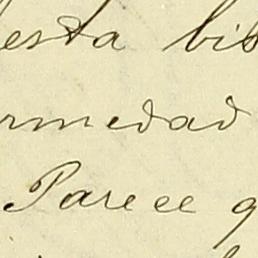 esta bis
rmedad
Parece q